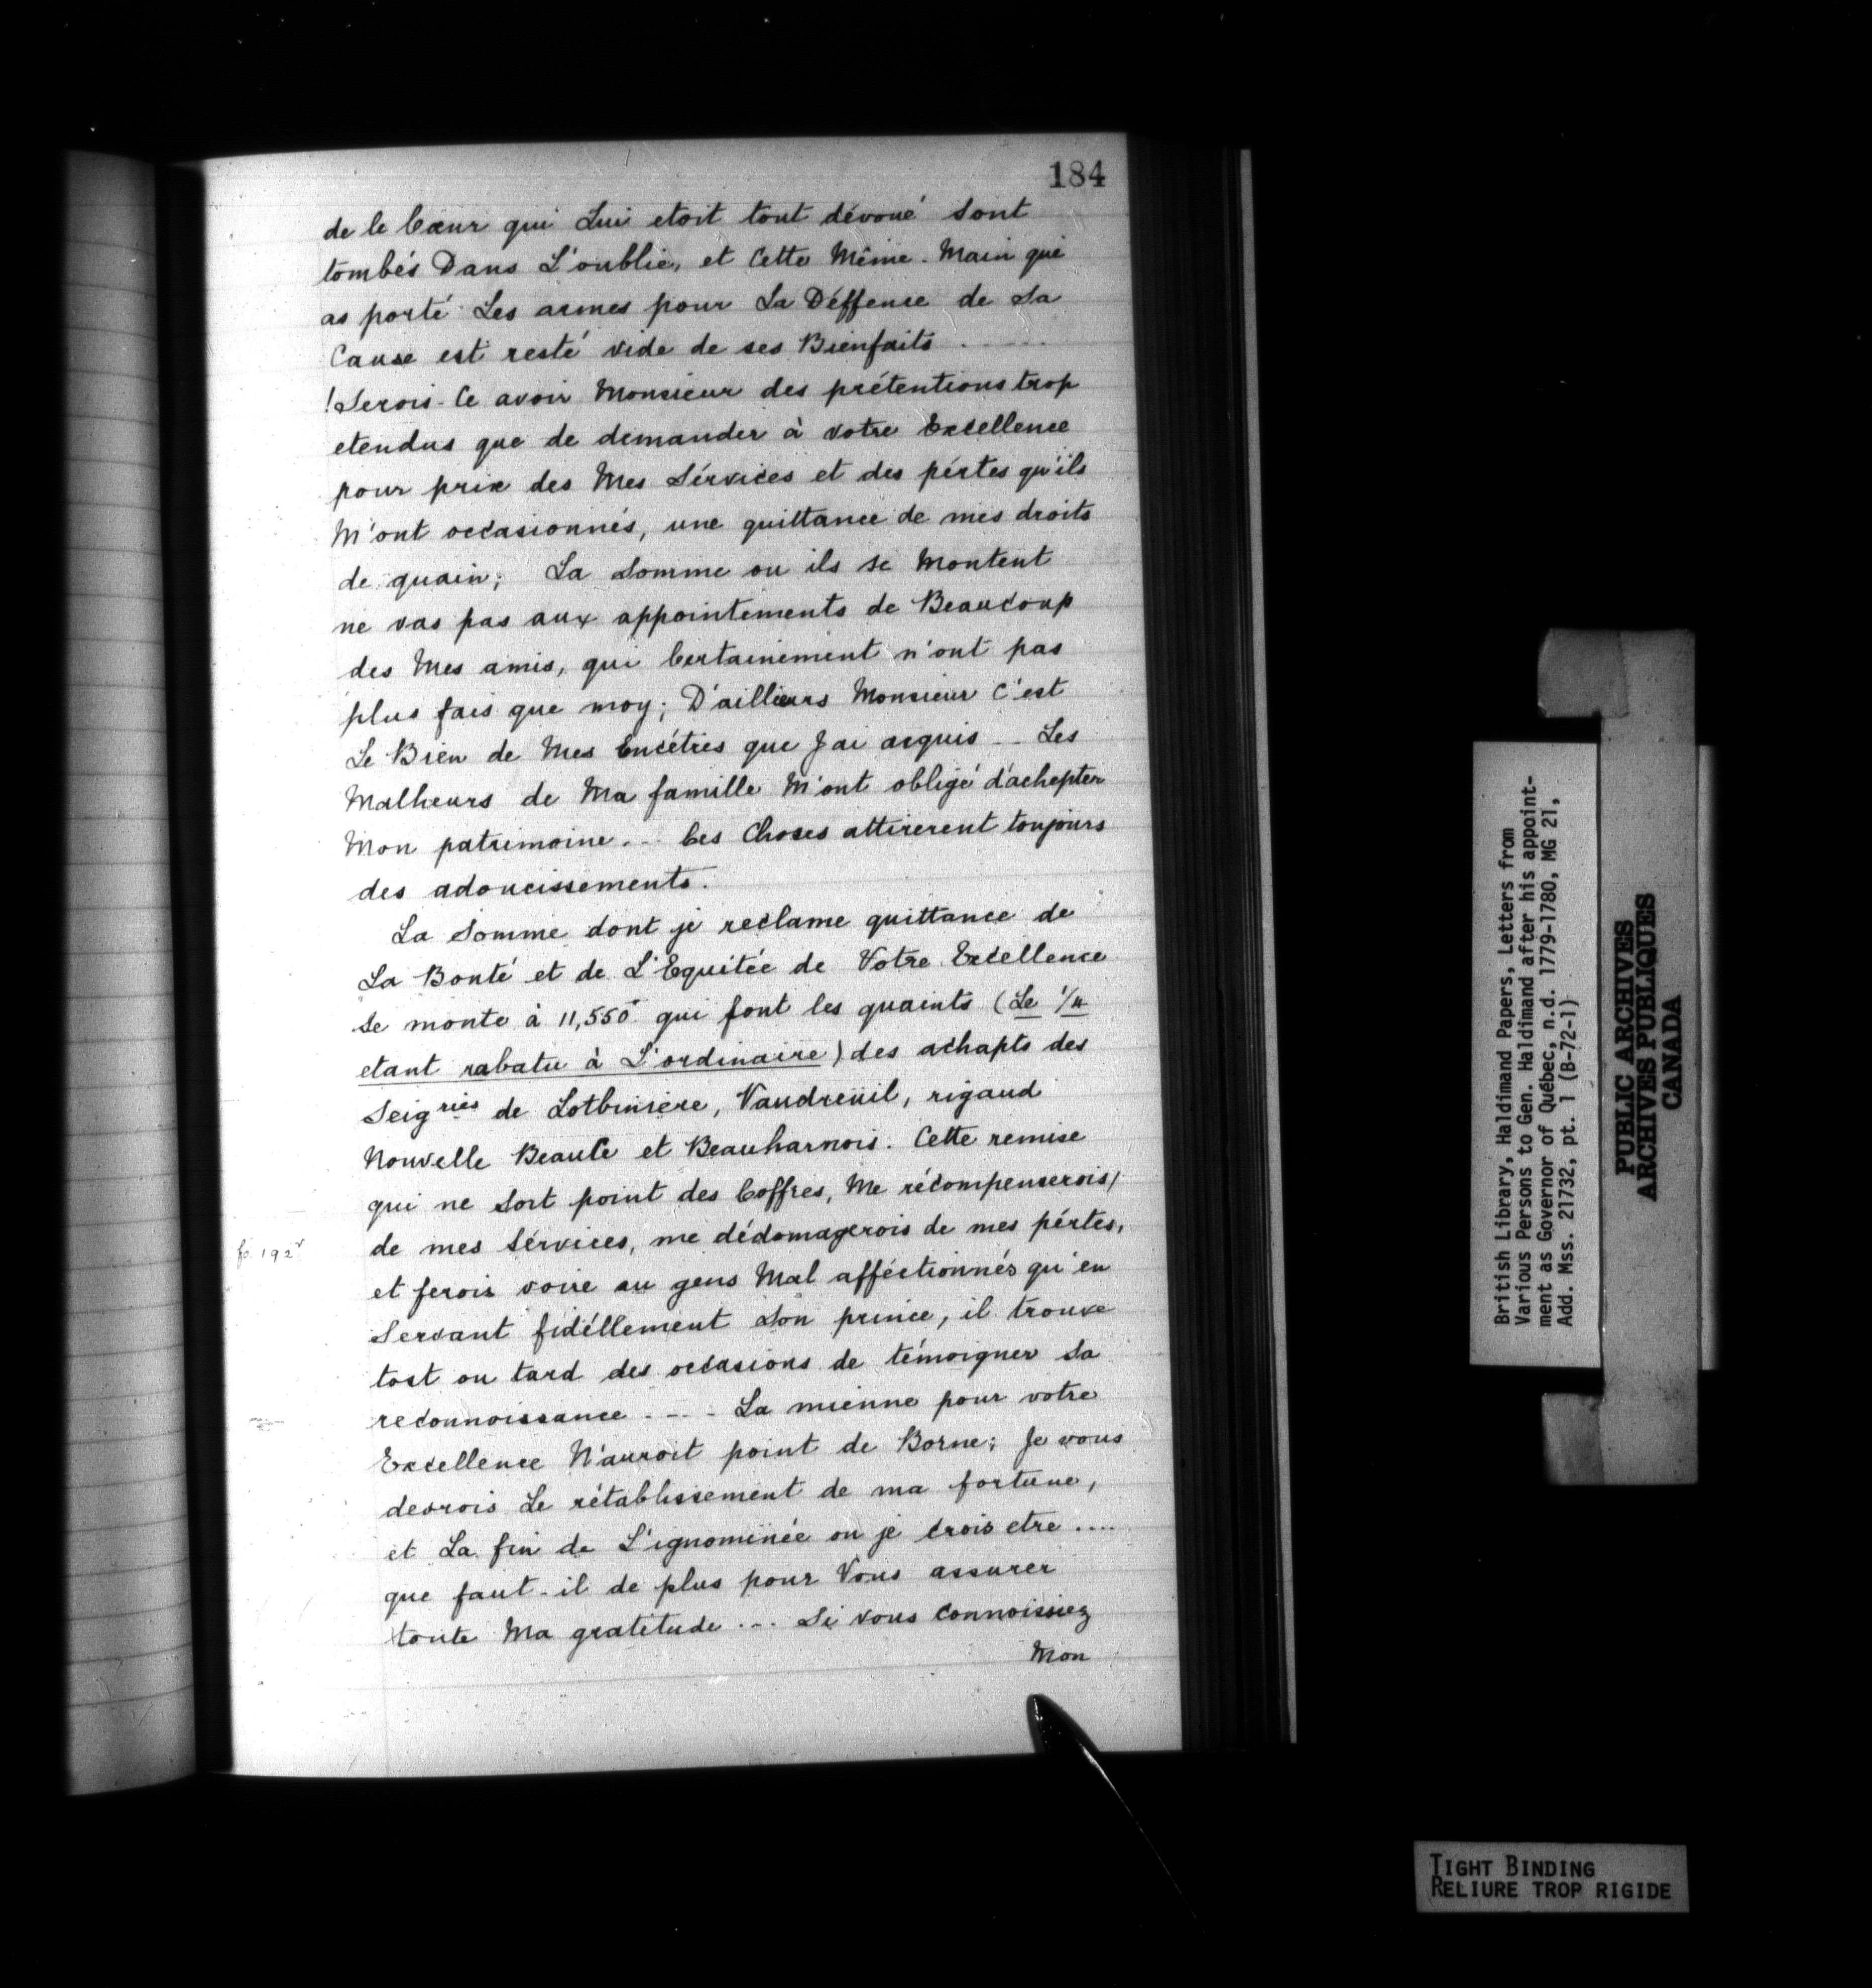 184
de le Cœur qui Lui etoit tout dévoué sont
tombés Dans L'oublie, et Cette Même Main qui
as porté Les armes pour La Déffense de Sa
Cause est resté vide de ses Bienfaits . . . . .
! Serois-Ce avoir Monsieur des prétentions trop
etendus que de demander à votre Excellence
pour prix des Mes Sérvices et des pértes qu'ils
M'ont occasionnés, une quittance de mes droits
de quain; La Somme ou ils se Montent
ne vas pas aux appointements de Beaucoup
des Mes amis, qui Certainement n'ont pas
plus fais que moy; D'ailleurs Monsieur C'est
Le Bien de Mes Encétres que J'ai acquis -- Les
Malheurs de Ma famille M'ont obligé d'achepter
Mon patrimoine . -- Ces Choses attirerent toujours
des adoucissements.
La Somme dont je reclame quittance de
La Bonté et de L'Equitée de Votre Excellence
Se monte à 11,550 qui font les quaints (Le 1/4
etant rabatu à L'ordinaire) des achapts des
Seigries de Lotbiniere, Vaudreüil, rigaud
Nouvelle Beauce et Beauharnois. Cette remise
qui ne Sort point des Coffres, Me récompenserois/
de mes Sérvices, me dédomagerois de mes pértes,
fo. 192v
et ferois voire au gens Mal afféctionnés qu'en
Servant fidéllement Son prince, il trouve
tost ou tard des occasions de témoigner Sa
reconnoissance . - - - La mienne pour votre
Excellence N'auroit point de Borne; Je vous
devrois Le rétablissement de ma fortune,
et La fin de L'ignominée ou je crois etre ....
que faut-il de plus pour Vous assurer
toute Ma gratitude ... Si vous Connoissiez
Mon
British Library, Haldimand Papers, Letters from
Various Persons to Gen. Haldimand after his appoint-
ment as Governor of Québec, n.d. 1779-1780, MG 21,
Add. Mss. 21732, pt. 1 (B-72-1)
PUBLIC ARCHIVES
ARCHIVES PUBLIQUES
CANADA
TIGHT BINDING
RELIURE TROP RIGIDE